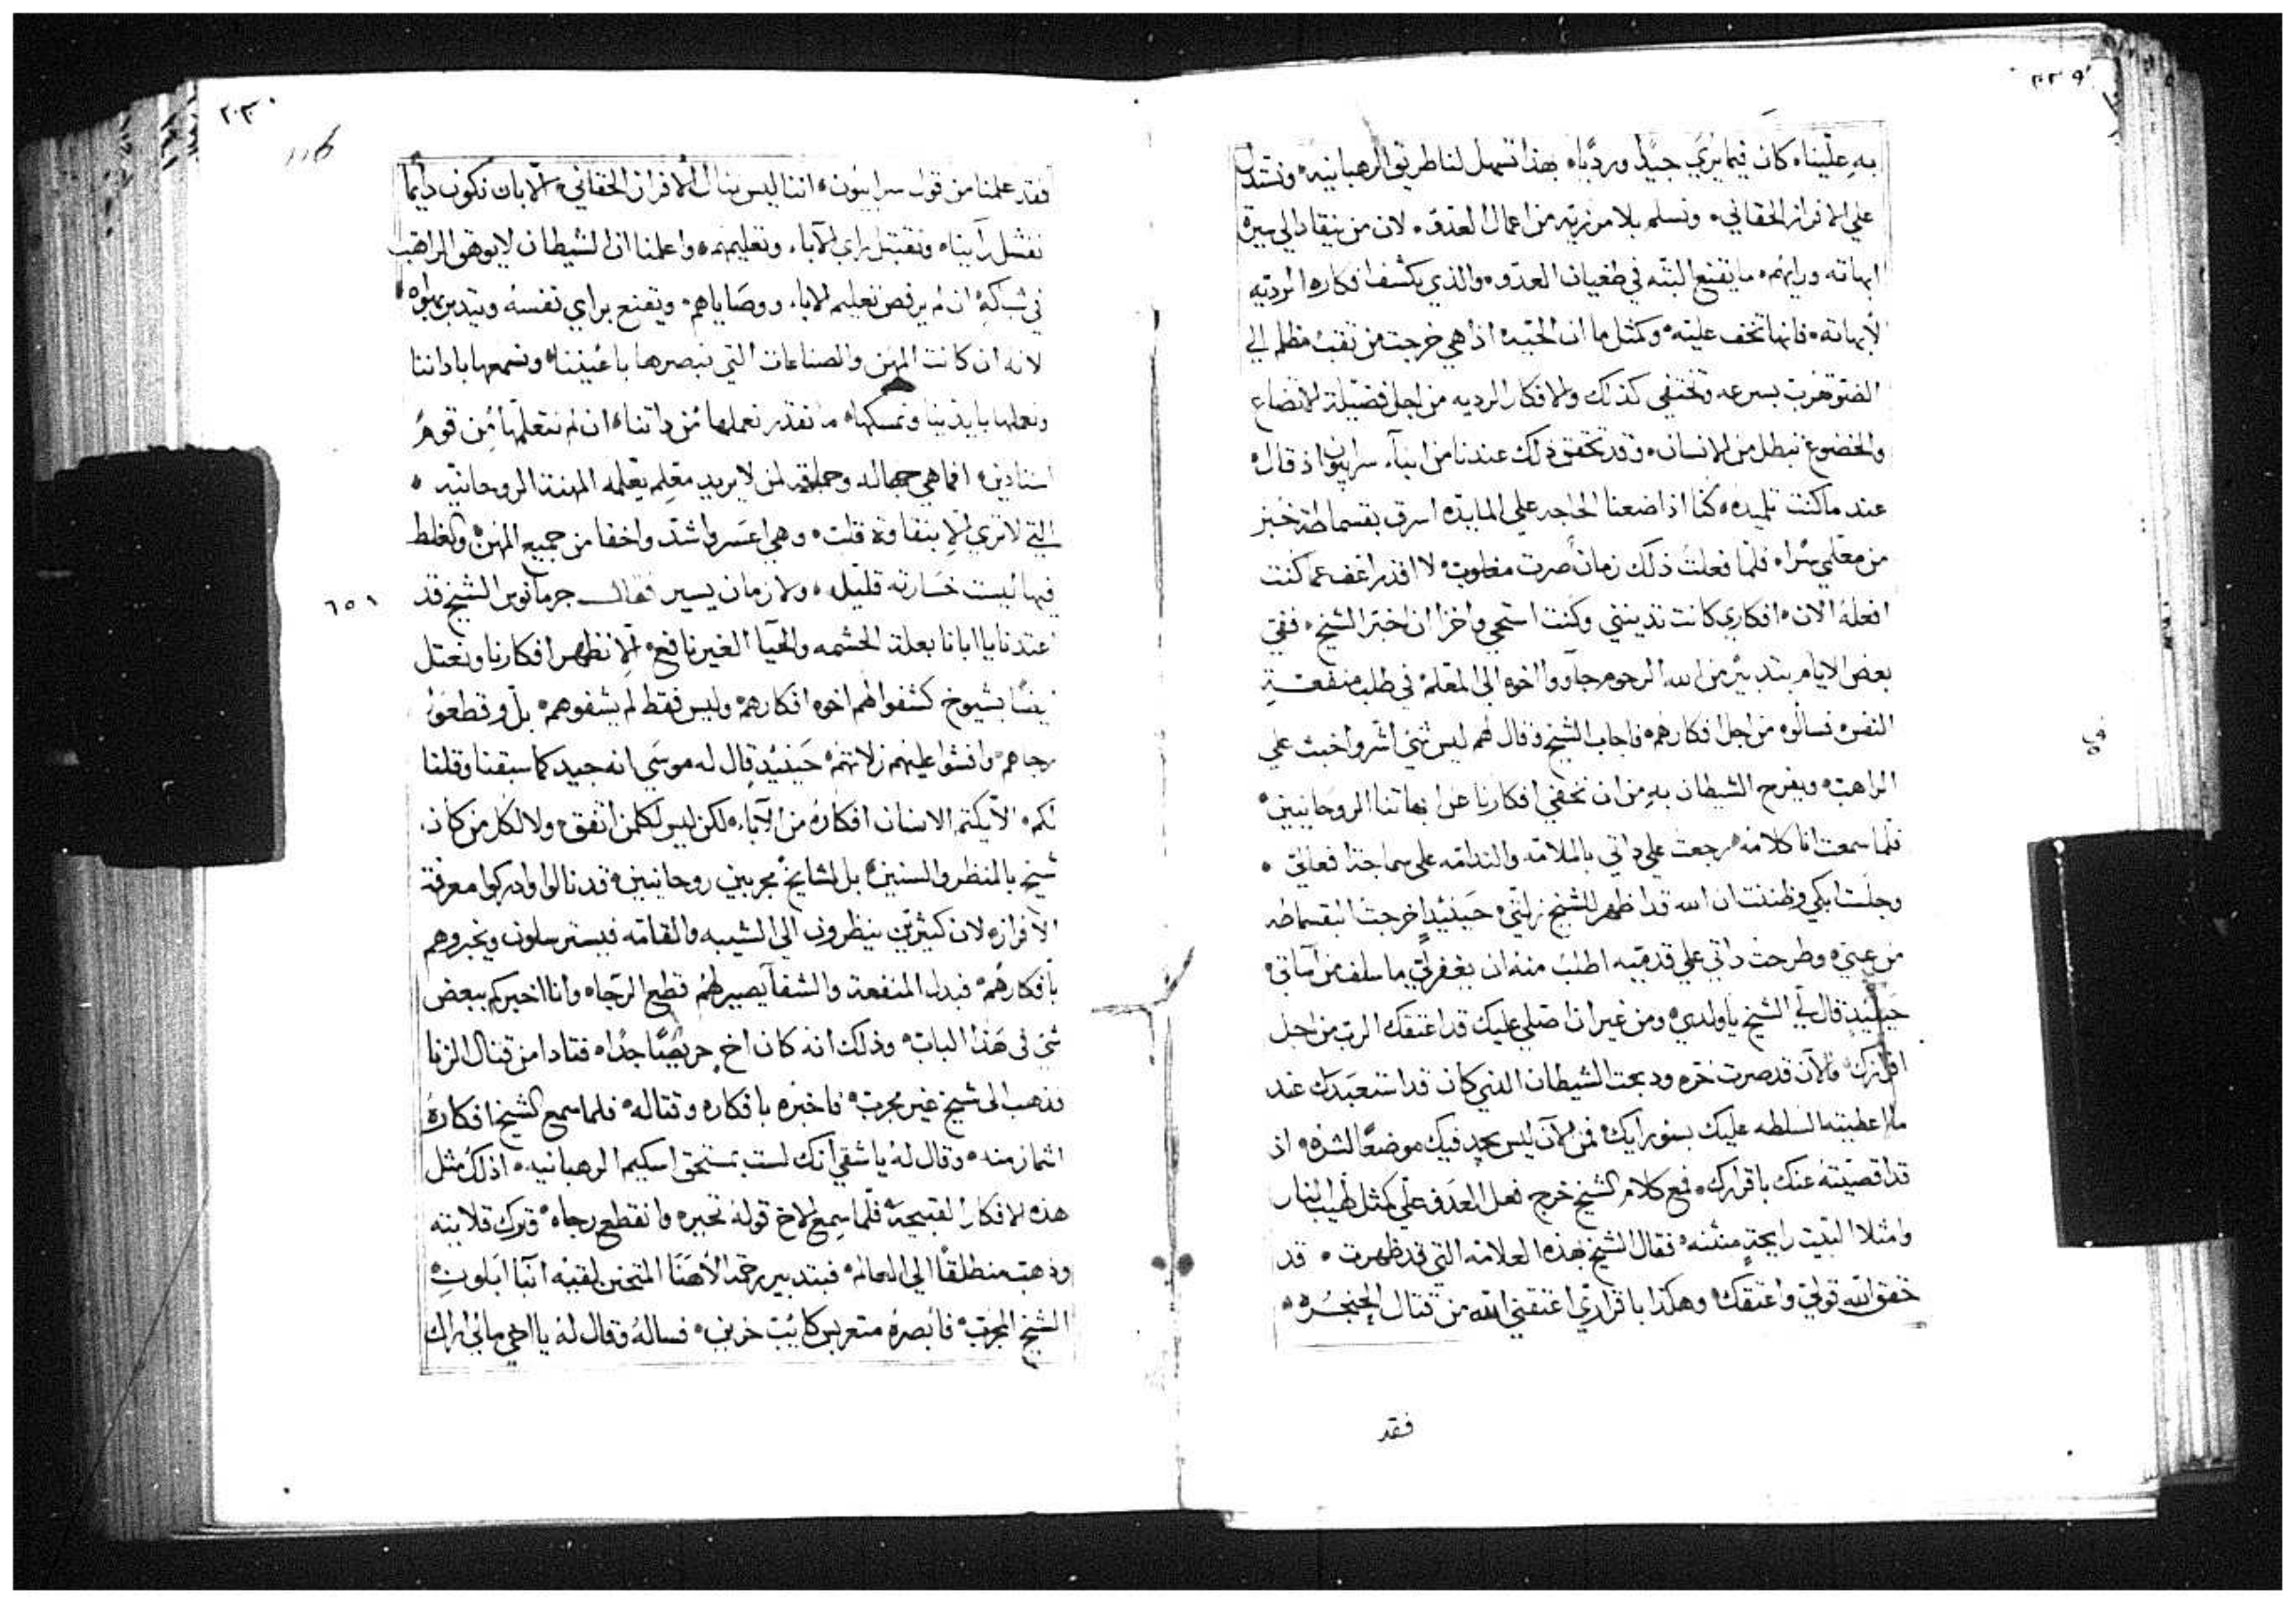 ٢٢٩
به علينا، كان فيما يري جيدا ورديا، بهذا تسهل لنا طريق الرهبانيه، ونستدل
علي الافراز الحقاني، ونسلم بلا من اعمال العدو، لان من ينقاد الي سيرة
ابهاته ورايهم، ما يقنع البته في طغيان العدو، والذي يكشف افكاره الرديه
لابهاته، فانها تخف عليه، وكمثل ما ان الحيه اذا هي خرجت من نقب مظلم الي
الضو تهرب بسرعه وتختفي كذلك والافكار الرديه من اجل فضيلة الاتضاع
والخضوع تبطل من الانسان، وقد تحقق ذلك عندنا من انبا سرابيون اذ قال،
عند ما كنت تلميده، كنا اذا ضعنا الحاجه علي المايده اسرق بقسماطة خبز
من معلمي سرا، فلما فعلت ذلك زمان صرت مغلوب، لا اقدر اعف عما كنت
افعله الان، افكاري كانت تدينني وكنت استحي واخزا ان اخبر الشيخ، ففي
بعض الايام بتدبير من الله الرحوم جاوو اخوه الي المعلم في طلب منفعة
النفس، فسالوه من اجل افكارهم، فاجاب الشيخ وقال لهم ليس شي اشر واخبث علي
الراهب، ويفرح الشيطان به من ان نخفي افكارنا عن ابهاتنا الروحانيين،
فلما سمعت انا كلامه، رجعت علي داتي بالملامه والندامه علي سماجة افعالي،
وجلت ابكي وظننت ان الله قد اظهر للشيخ زلتي، حينيد اخرجت البقسماطه
من عبي، وطرحت داتي علي قدميه اطلب منه ان يغفر لي ما سلف من
حينيد قال لي الشيخ يا ولدي، ومن غير ان اصلي عليك قد اعتقك الرب من اجل
اقرارك، فالان قد صرت حره ودبحت الشيطان الذي كان قد استعبدك عند
ما اعطيته السلطه عليك بسو رايك، فمن الان ليس يجد فيك موضعا لشره، اذ
قد اقصيته عنك باقرارك، فمع كلام الشيخ خرج فعل العدو مني كمثل لهيب النار
وامتلا البيت رايحة منتنه، فقال الشيخ بهذه العلامه التي قد ظهرت، قد
حقق الله قولي واعتقك، وهكذا باقراري اعتقني الله من قتال الحنجره،
في
فقد
٢٣٠
116
فقد علمنا من قول سرابيون، اننا ليس ننال الافراز الحقاني، الا بان نكون دايما
نفشل راينا، ونقتبل راي الاباء، وتعليمهم، واعلمنا ان الشيطان لا يوهق الراهب
في شباكه، ان لم يرفض تعليم الاباء، ووصاياهم، ويقنع براي نفسه ويتدبر بهواه،
لانه ان كانت المهن والصناعات التي نبصرها باعيننا، ونسمعها باداننا
ونعملها بايدينا ونمسكها، ما نقدر نعملها من داتنا، ان لم نتعلمها من قوم
استادين، افما هي جهاله وحماقه لمن لا يريد معلم يعلمه المهنة الروحانيه،
التي لا تري الا بنقاوة قلب، وهي اعسر واشد واخفا من جميع المهن، والغلط
فيها ليست خسارته قليله، ولا زمان يسير فقال جرمانوس الشيخ قد
٦٥١
عتدنا يا ابانا بعلة الحشمه والحيا الغير نافع، الا نظهر افكارنا ونعتل
يضا بشيوخ كشفوا لهم اخوه افكارهم، وليس فقط لم يشفوهم، بل وقطعوا
رجاهم، وافشوا عليهم زلاتهم، حينيد قال له موسي انه جيد كما سبقنا وقلنا
لكم، الا يكتم الانسان افكاره من الاباء، لكن ليس لكلمن اتفق، ولا لكل من كان
شيخ بالمنظر والسنين، بل لمشايخ مجربين روحانيين، قد نالوا وادركوا معرفة
الافراز، لان كثيرين ينظرون الي الشيبه والقامه فيسترسلون ويخبروهم
بافكارهم، فبدل المنفعة والشفا يصير لهم قطع الرجاه، وانا اخبركم ببعض
شي في هذا الباب، وذلك انه كان اخ حريصا جدا، فتادا من قتال الزنا
فذهب الي شيخ غير مجرب، فاخبره بافكاره وقتاله، فلما سمع الشيخ افكاره
اشماز منه، وقال له يا شقي انك لست بمستحق اسكيم الرهبانيه، اذ لك مثل
هذه الافكار القبيحه، فلما سمع الاخ قوله تحير، وانقطع رجاه، وترك قلايته
وذهب منطلقا الي العالم، فبتدبير رحمة الاهنا المتحنن لقيه انبا ابلون
الشيخ المجرب، فابصره متعربس كايب حزين، فساله وقال له يا اخي ماني اراك